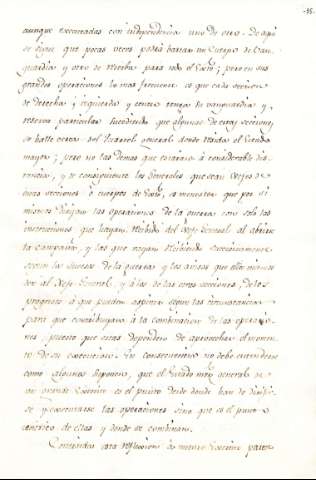 -35-
aunque executadas con independencia uno de otro. De aqui
se sigue que pocas veces podrá bastar un Cuerpo de Van-
guardia y otro de reserva para todo el Exto; pero en sus
grandes operaciones lo mas frecuente es que cada seccion
de derecha, izquierda y centro tenga su vanguardia y
reserva particular sucediendo que algunas de estas secciones
se halle cerca del Quartel general donde reside el Estado
mayor; pero no las demas que estaran á considerable dis-
tancia, y de consiguiente los Generales que sean Gefes de
estas secciones ó cuerpos de Exto, es menester que por si
mismos dirijan las operaciones de la guerra con solo las
instrucciones que hayan recibido del Gefe General al abrir
la Campaña, y las que vayan recibiendo sucesivamente
segun los sucesos de la guerra y los avisos que ellos mismos
den al Gefe General, y á los de las otras secciones, de los
progresos á que pueden aspirar segun las circunstancias
para que contribuyan á la combinacion de las operacio-
nes, puesto que estas dependen de aprovechar el momen-
to de su execucion. En consecuencia no debe entenderse
como algunos suponen, que el Estado mayor general de
un grande Exercito es el punto desde donde han de dirigir-
se y executarse las operaciones sino que es el punto
centrico de ellas y donde se combinan.
Contraidas estas reflexiones á nuestro Exercito parece